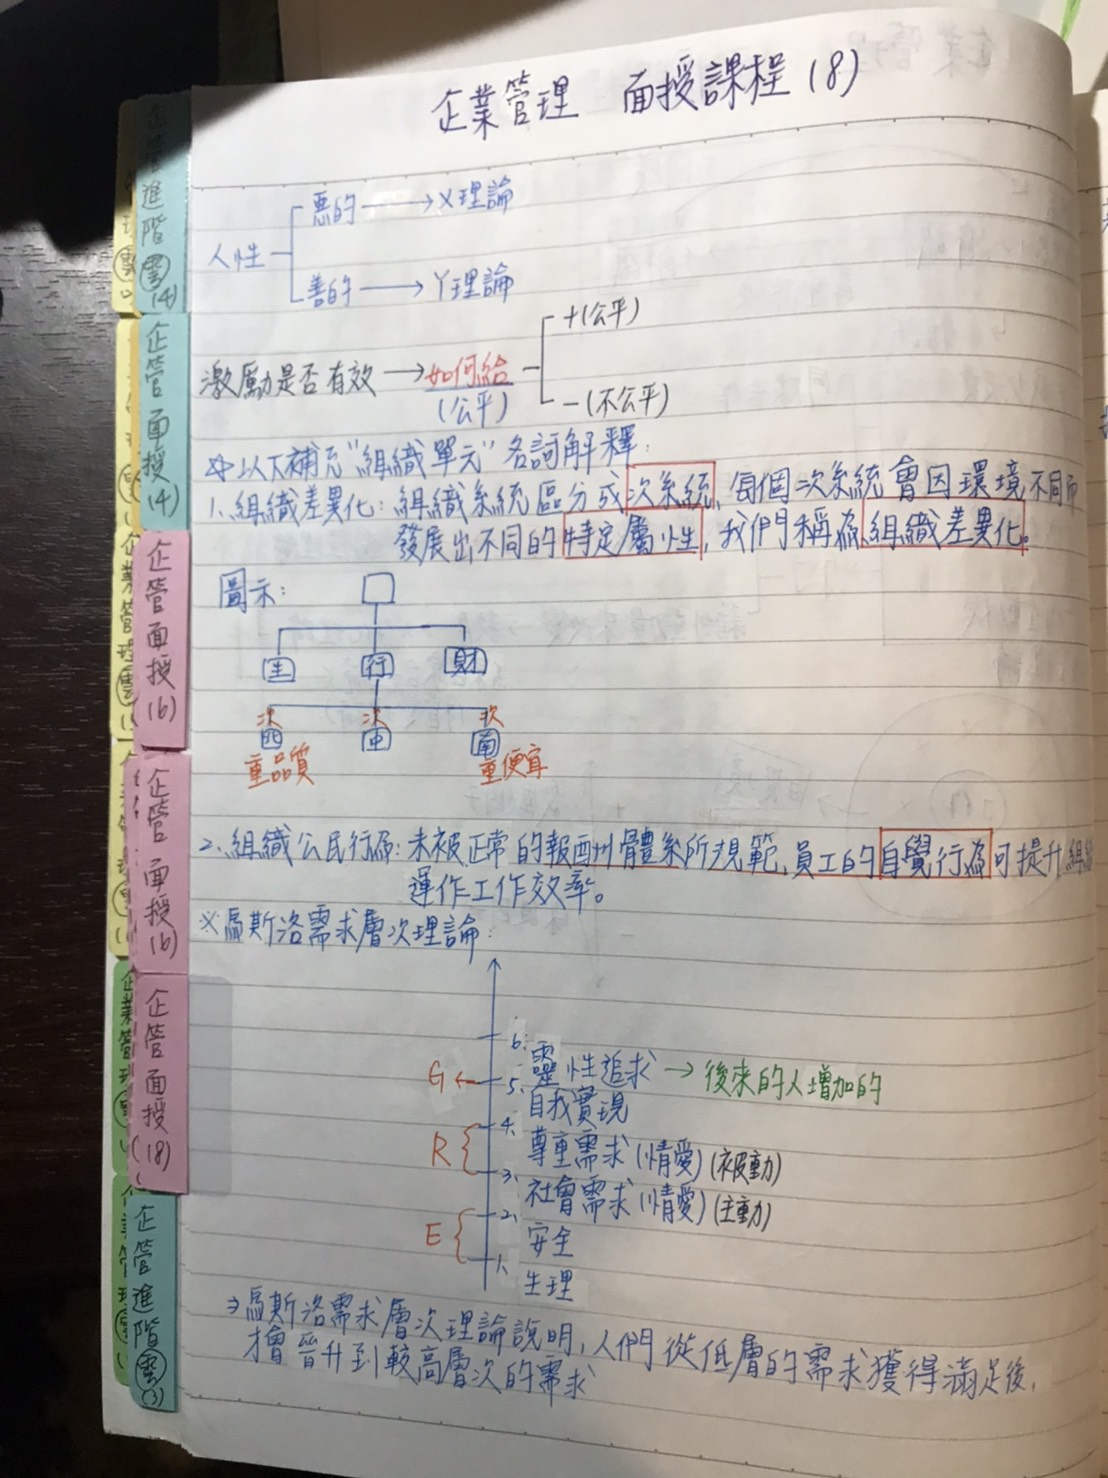 企業管理　面授課程(8)
惡的→X理論
人性
善的→Y理論
+(公平)
激勵是否有效→如何給
(公平)
-(不公平)
以下補充"組織單元"名詞解釋:
1.組織差異化:組織系統區分成次系統,每個次系統會因環境不同而
發展出不同的特定屬性,我們稱為組織差異化。
圖示:
生 行 財
次 次 次
西 中 南
重品質 重便宜
2.組織公民行為:未被正常的報酬體系所規範,員工的自覺行為可提升組織
運作工作效率。
※馬斯洛需求層次理論:
6. 靈性追求→後來的人增加的
G← 5. 自我實現
R{ 4. 尊重需求(情愛)(被動)
3. 社會需求(情愛)(主動)
E{ 2. 安全
1. 生理
→馬斯洛需求層次理論說明,人們從低層的需求獲得滿足後,
才會晉升到較高層次的需求
進階雲(4)
企管面授(4)
企管面授(6)
企管面授(6)
企管面授(8)
企管進階雲
企業管理雲
企業管理